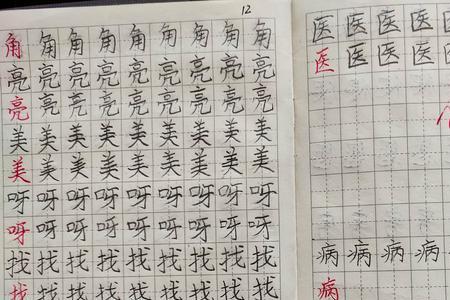 12
角角角角角角角角角
亮亮亮亮亮亮亮亮亮
亮亮亮亮亮亮亮亮亮
美美美美美美美美美
美美美美美美美美美
呀呀呀呀呀呀呀呀呀
呀呀呀呀呀呀呀呀呀
找找找找找找找找找
找找找找找找找找找
医医医医
医医医医
病病病病
病